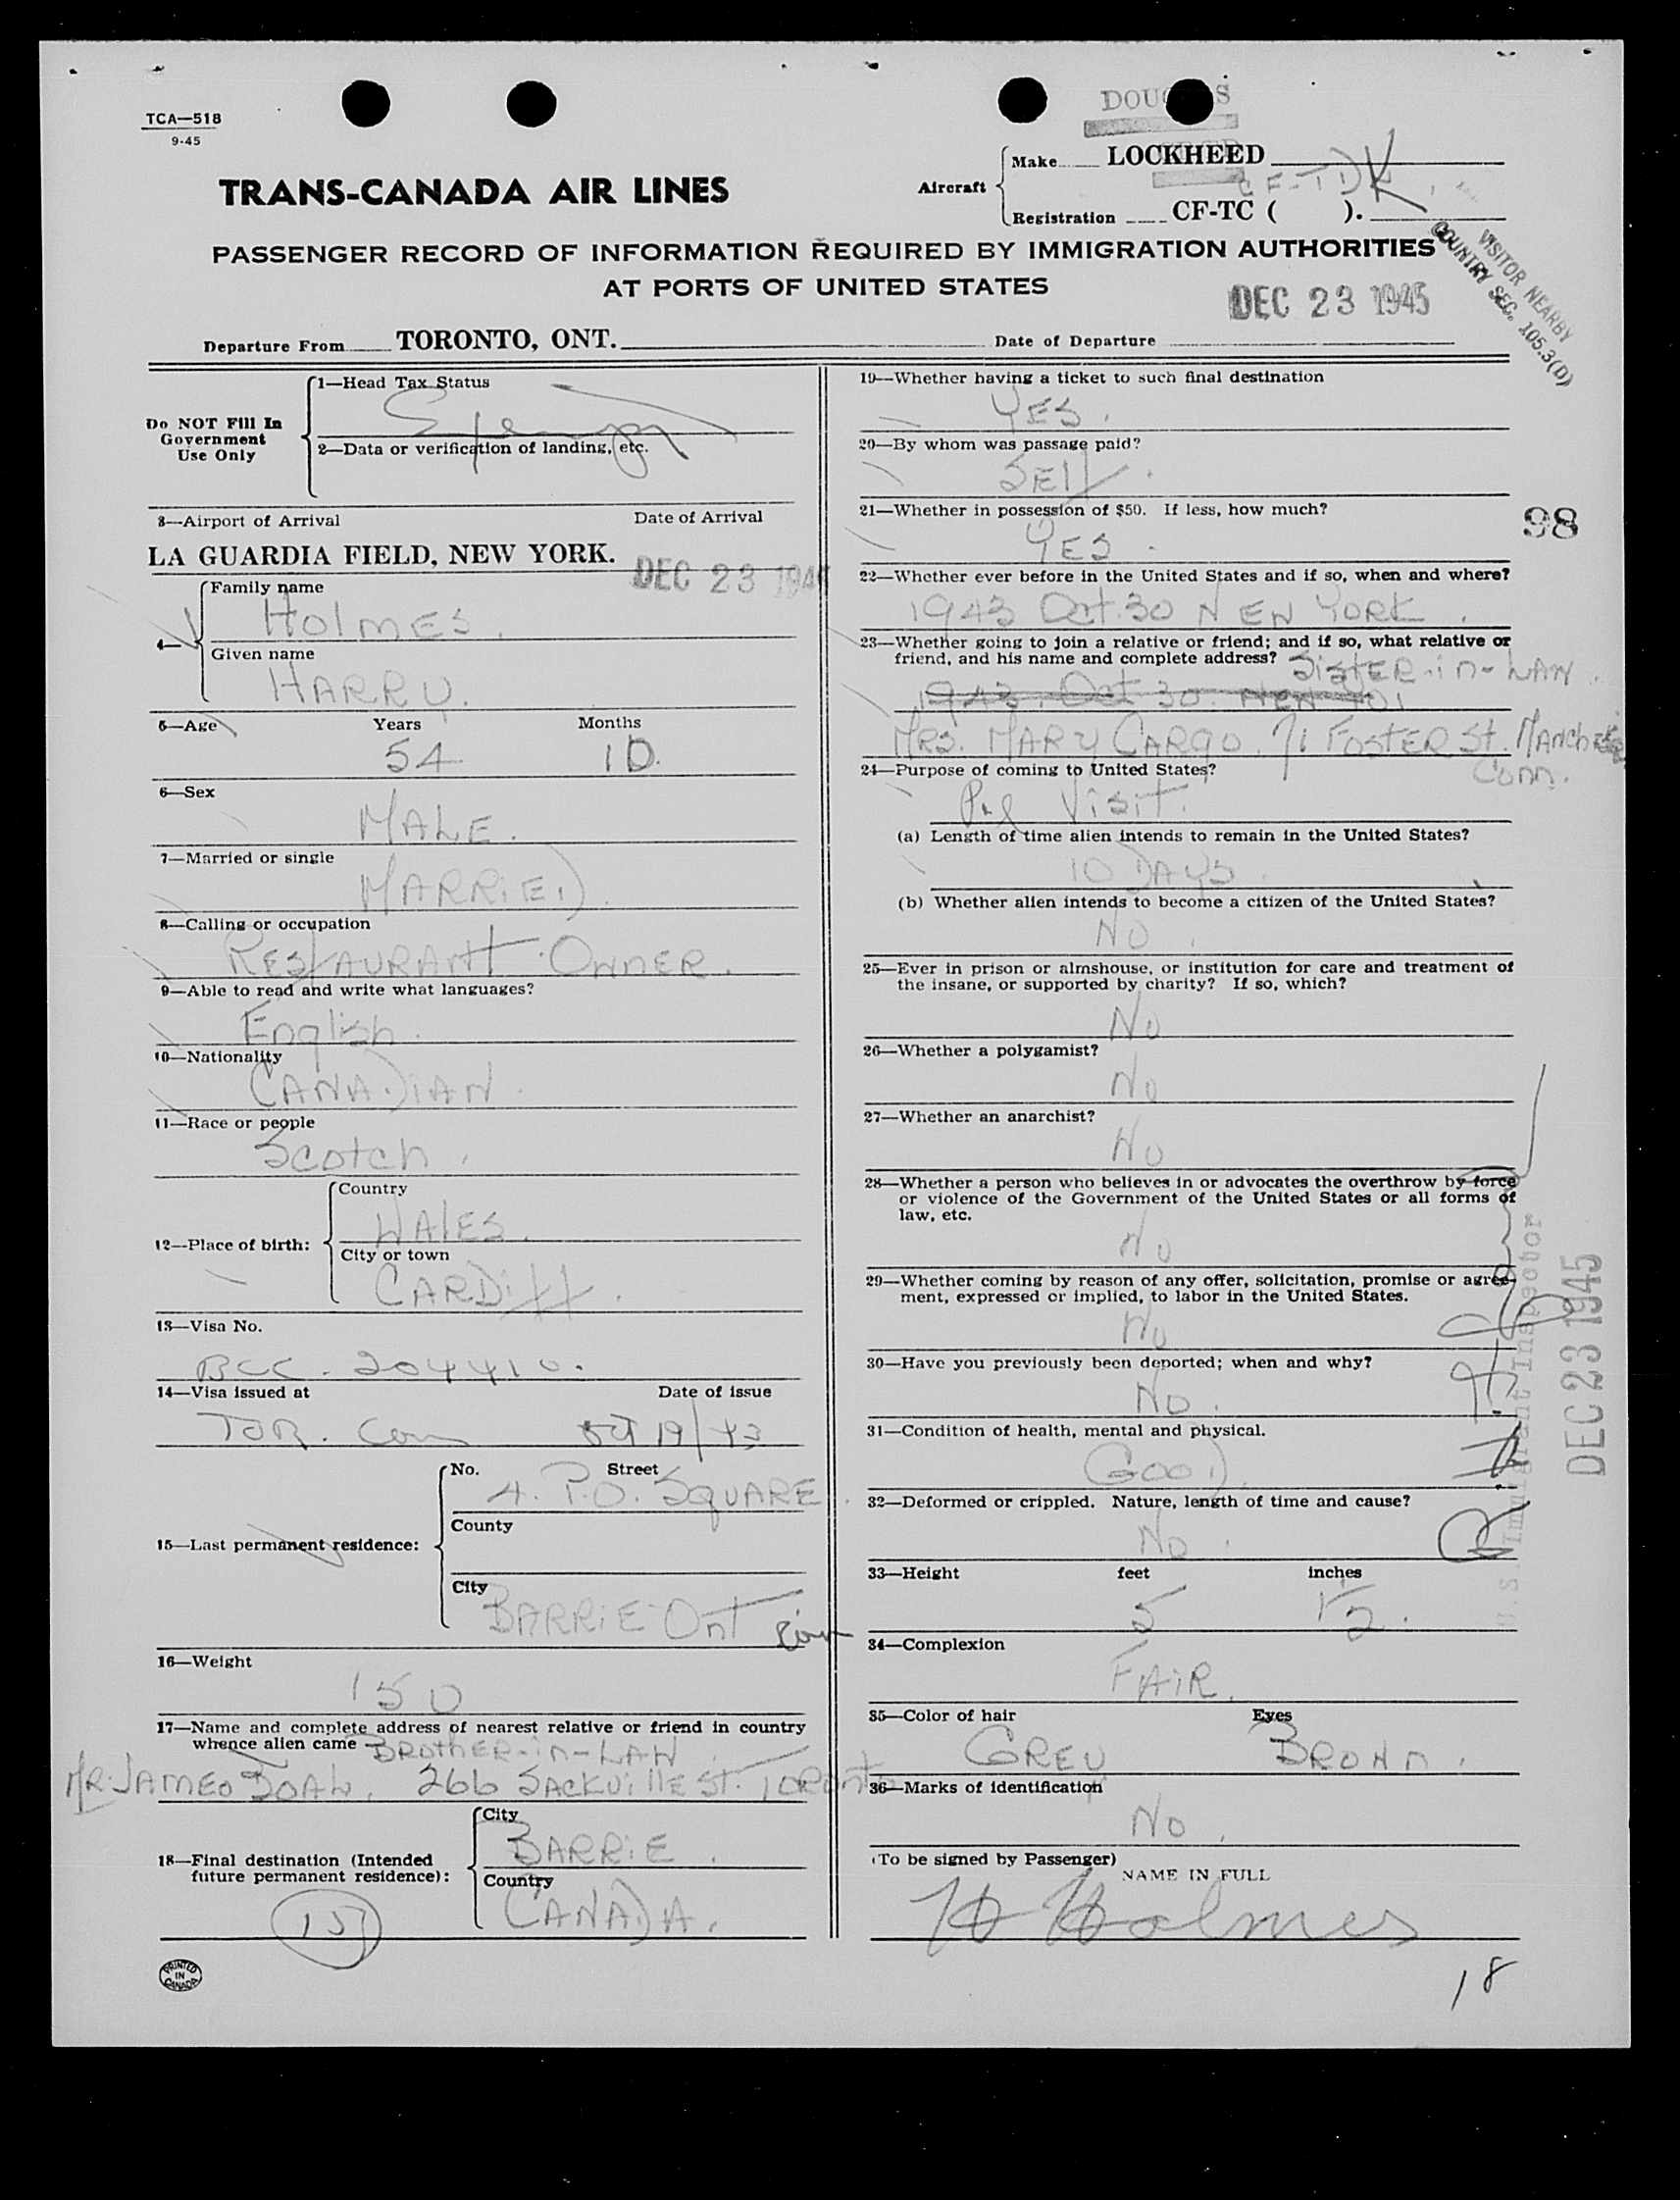 TCA—518
9-45
DOUGLAS
TRANS-CANADA AIR LINES
Aircraft
Make LOCKHEED
CF-TDK
Registration CF-TC ( ).
PASSENGER RECORD OF INFORMATION REQUIRED BY IMMIGRATION AUTHORITIES
AT PORTS OF UNITED STATES
VISITOR NEARBY
COUNTRY SEC. 105.3(D)
DEC 23 1945
Departure From TORONTO, ONT. Date of Departure
Do NOT Fill In
Government
Use Only
1—Head Tax Status
2—Data or verification of landing, etc.
3—Airport of Arrival Date of Arrival
LA GUARDIA FIELD, NEW YORK. DEC 23 194
4—
Family name
HOLMES.
Given name
HARRY.
5—Age Years Months
54 10.
6—Sex
MALE.
7—Married or single
MARRIED.
8—Calling or occupation
RESTAURANT OWNER.
9—Able to read and write what languages?
English.
10—Nationality
CANADIAN.
11—Race or people
Scotch.
12—Place of birth:
Country
WALES.
City or town
CARDIFF.
13—Visa No.
BCC - 204410.
14—Visa issued at Date of issue
TOR. Con Oct 19/43
15—Last permanent residence:
No. Street
4. P.O. SQUARE.
County
City
BARRIE Ont
16—Weight
150
17—Name and complete address of nearest relative or friend in country
whence alien came BROTHER-in-LAW.
MR. JAMES BOAL. 266 SACKVILLE ST. TORONTO
18—Final destination (Intended
future permanent residence):
City
BARRIE.
Country
CANADA.
15
PRINTED
IN
CANADA
19—Whether having a ticket to such final destination
YES.
20—By whom was passage paid?
SELF.
21—Whether in possession of $50. If less, how much?
YES.
98
22—Whether ever before in the United States and if so, when and where?
1943 Oct. 30 NEW YORK.
23—Whether going to join a relative or friend; and if so, what relative or
friend, and his name and complete address? SISTER-in-LAW.
1943. Oct 30. NEW YO
MRS. MARY CARGO. 71 FOSTER St. MANCHESTER
CONN.
24—Purpose of coming to United States?
Visit.
(a) Length of time alien intends to remain in the United States?
10 DAYS.
(b) Whether alien intends to become a citizen of the United States?
NO.
25—Ever in prison or almshouse, or institution for care and treatment of
the insane, or supported by charity? If so, which?
NO
26—Whether a polygamist?
NO
27—Whether an anarchist?
NO
28—Whether a person who believes in or advocates the overthrow by force
or violence of the Government of the United States or all forms of
law, etc.
NO
29—Whether coming by reason of any offer, solicitation, promise or agree-
ment, expressed or implied, to labor in the United States.
NO
30—Have you previously been deported; when and why?
NO.
31—Condition of health, mental and physical.
GOOD.
32—Deformed or crippled. Nature, length of time and cause?
NO.
33—Height feet inches
5 1/2.
34—Complexion
FAIR.
35—Color of hair Eyes
GREY BROWN.
36—Marks of identification
NO.
(To be signed by Passenger)
NAME IN FULL
H Holmes
U.S. Immigrant Inspector
DEC 23 1945
18